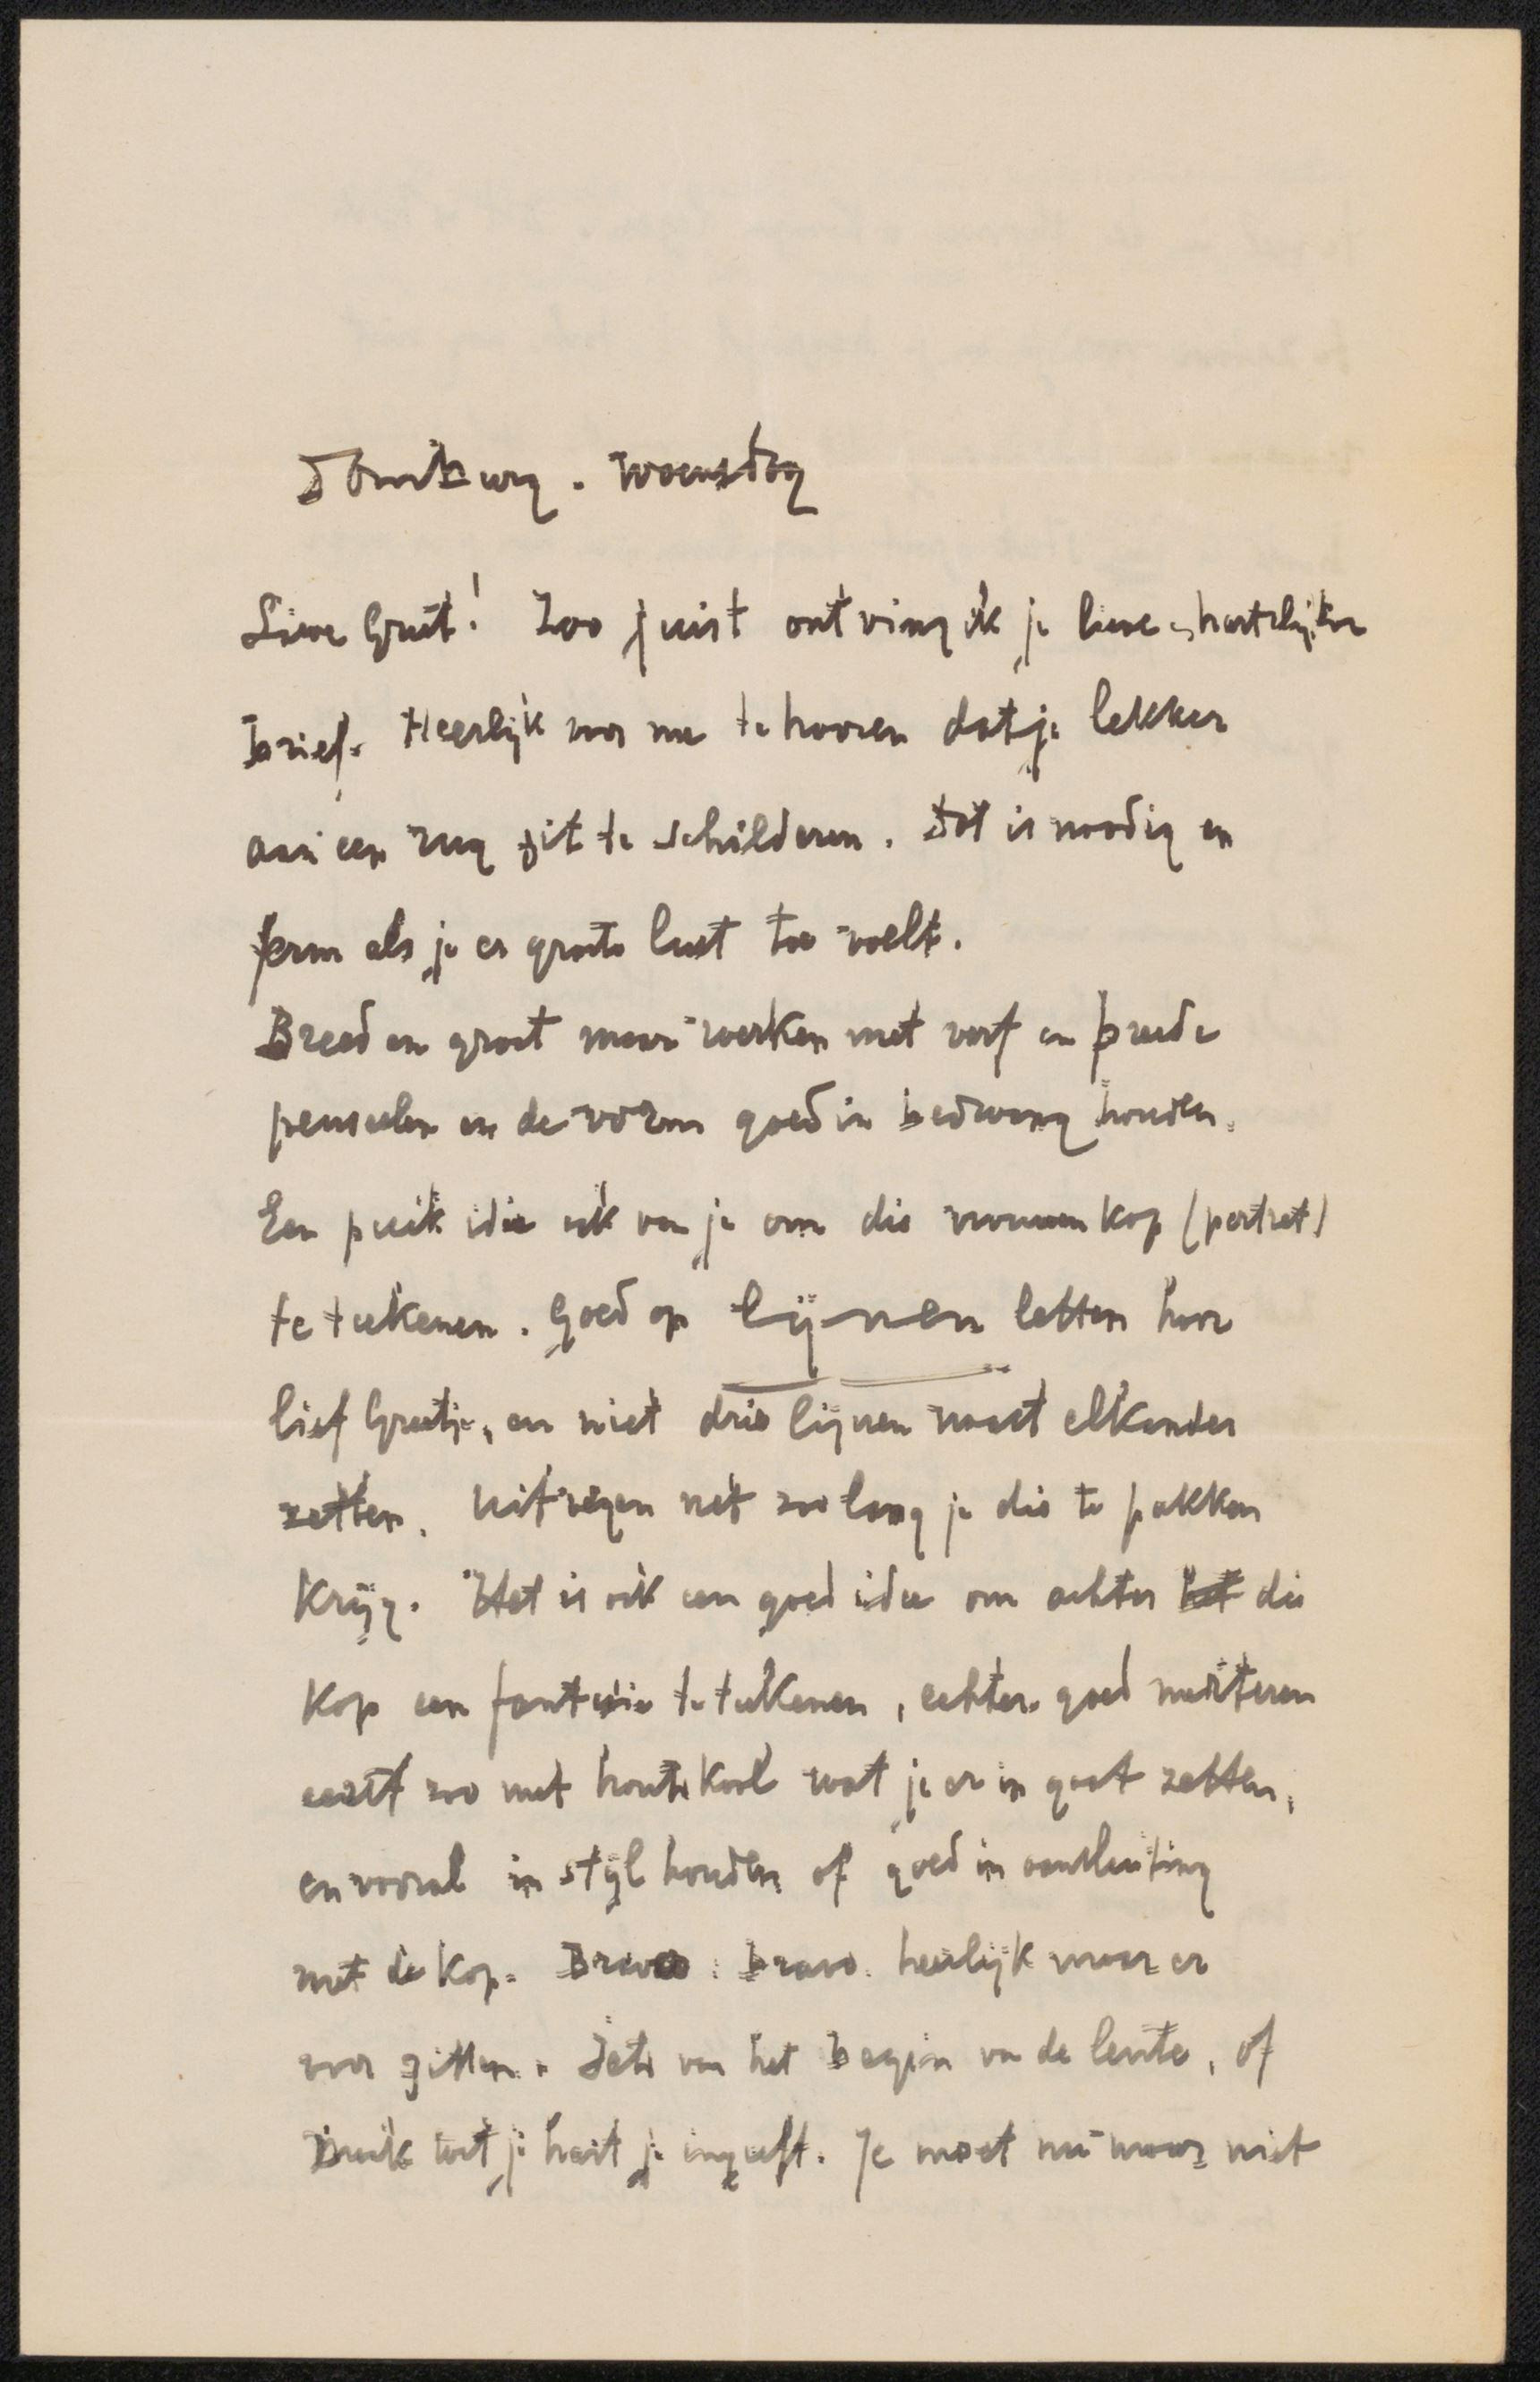 Domburg. Woensdag
Lieve Greet! Zoo juist ontving ik je lieve en hartelijke
brief. Heerlijk voor me te hooren dat je lekker
aan een rug zit te schilderen. Dat is noodig en
ferm als je er groote lust toe voelt.
Breed en groot maar werken met verf en breede
penseelen en de vorm goed in bedwang houden.
Een puik idee ook van je om die vrouwenkop (portret)
te teekenen. Goed op lijnen letten hoor
lief Greetje, en niet drie lijnen naast elkander
zetten. Uitvegen net zoo lang je die te pakken
krijg. Het is ook een goed idee om achter het die
kop een fantasie te teekenen, echter goed
eerst zoo met houtskool wat je er in gaat zetten,
en vooral in stijl houden of goed in aansluiting
met de kop. Bravo. bravo. heerlijk maar er
voor zitten. Iets van het begin van de lente, of
Druk wat je hart je ingeeft. Je moet nu maar niet